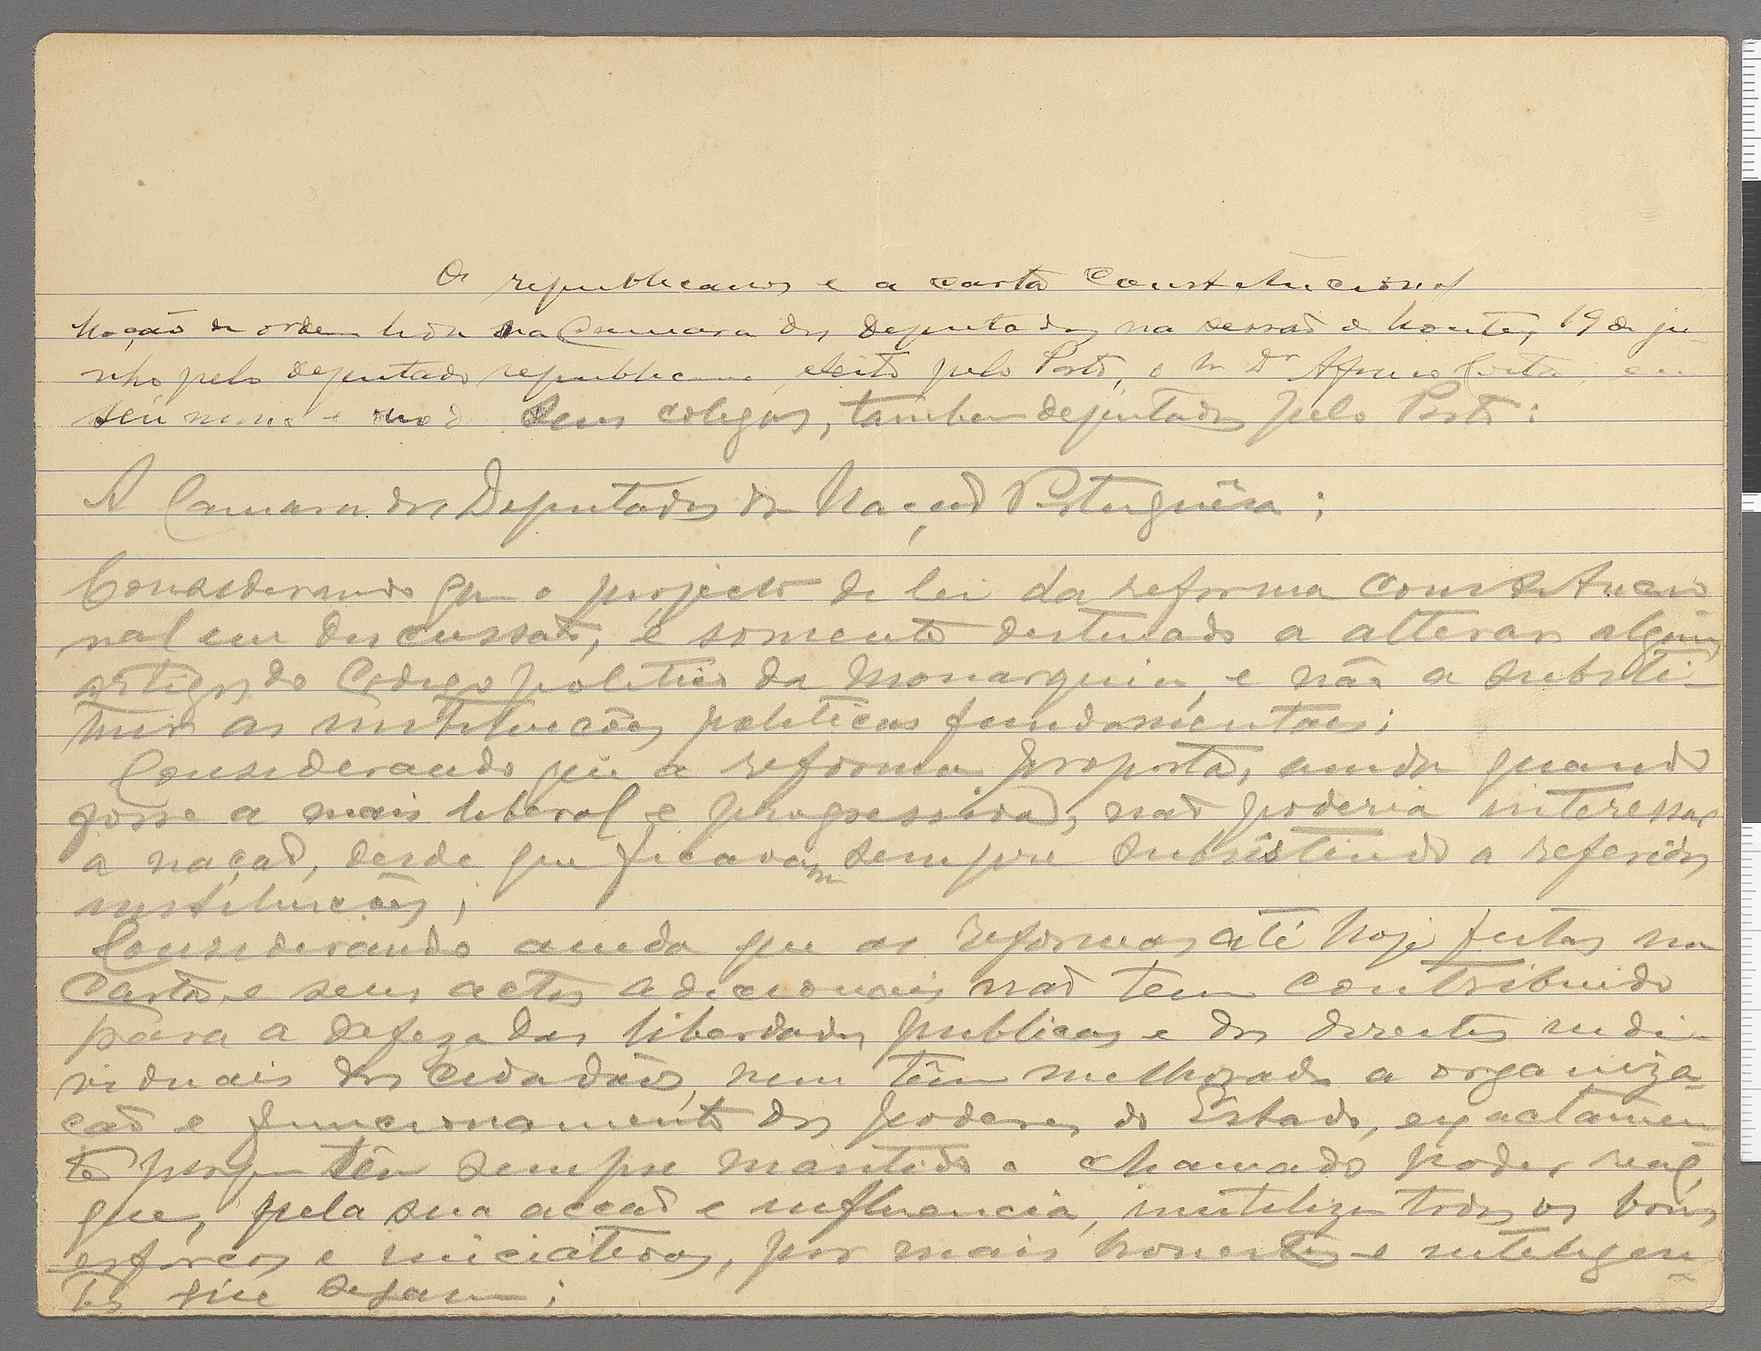 Os republicanos e a carta Constitucional
Moção de ordem lida na Camara dos deputados na sessão de hontem, 19 de ju-
nho pelo deputado republicano eleito pelo Porto, o Sr. Dr. Afonso Costa, em
seu nome e no de seus colegas, tambem deputados pelo Porto:
A Camara dos Deputados da Nação Portuguêsa;
Considerando que o projecto de lei da reforma constitucio
nal em discussão, é somente destinado a alterar alguns
artigos do Codigo politico da Monarquia, e não a substi-
tuir as instituições politicas fundamentaes;
Considerando que a reforma proposta, ainda quando
fosse a mais liberal e progressiva, não poderia interessar
a nação, desde que ficavam sempre subsistindo a referidas
instituições;
Considerando ainda que as reformas até hoje feitas na
Carta e seus actos adicionais não tem contribuido
para a defeza das liberdades publicas e dos direitos indi-
viduais dos cidadãos, nem têm melhorado a organiza
ção e funcionamento dos poderes do Estado, exactamen
te porque têm sempre mantido o chamado poder real,
que, pela sua acção e influencia, inutiliza todos os bons
esforços e iniciativas, por mais honestos e inteligen
tes que sejam;